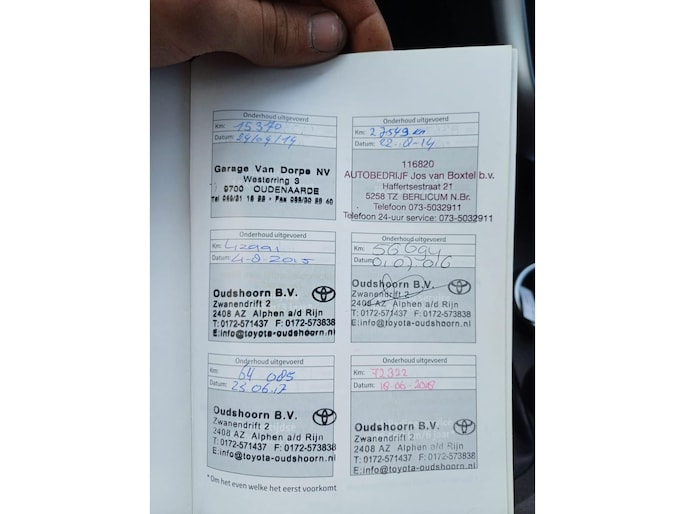 Onderhoud uitgevoerd
Km: 15370
Datum:
Garage Van Dorpe NV
Westerring 3
9700 OUDENAARDE
Onderhoud uitgevoerd
Km: 27549 km
Datum: 22-8-14
116820
AUTOBEDRIJF Jos van Boxtel b.v.
Haffertsestraat 21
5258 TZ BERLICUM N.Br.
Telefoon 073-5032911
Telefoon 24-uur service: 073-5032911
Onderhoud uitgevoerd
Km:
Datum: 4-8-2015
Oudshoorn B.V.
Zwanendrift 2
2408 AZ Alphen a/d Rijn
T: 0172-571437 F: 0172-573838
E:info@toyota-oudshoorn.nl
Onderhoud uitgevoerd
Km:
Datum:
Oudshoorn B.V.
Zwanendrift 2
2408 AZ Alphen a/d Rijn
T: 0172-571437 F: 0172-573838
E:info@toyota-oudshoorn.nl
Onderhoud uitgevoerd
Km: 64 085
Datum: 23.06.17
Oudshoorn B.V.
Zwanendrift 2
2408 AZ Alphen a/d Rijn
T: 0172-571437 F: 0172-573838
E:info@toyota-oudshoorn.nl
Onderhoud uitgevoerd
Km: 72322
Datum: 18-06-2018
Oudshoorn B.V.
Zwanendrift 2
2408 AZ Alphen a/d Rijn
T: 0172-571437 F: 0172-573838
E:info@toyota-oudshoorn.nl
* Om het even welke het eerst voorkomt